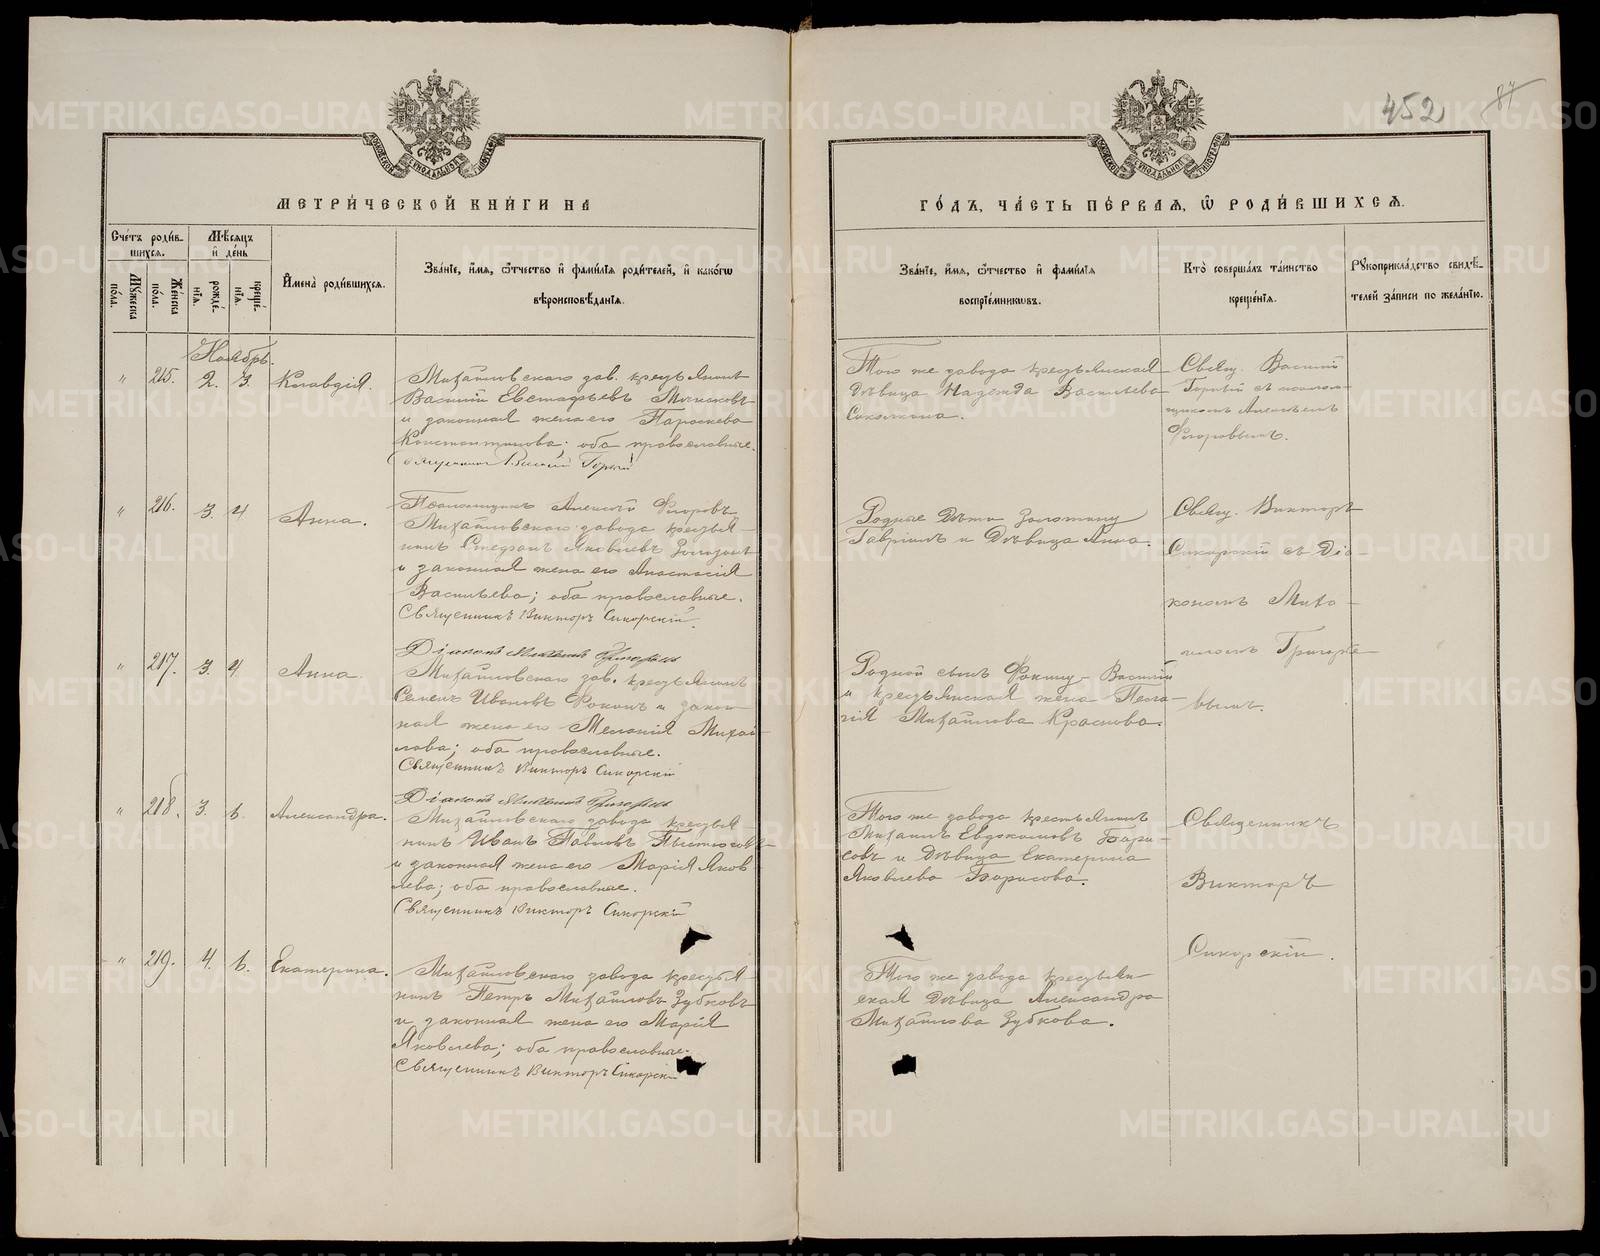 452
87
МЕТРИ́ЧЕСКОЙ КНИ́ГИ НА
ГО́ДЪ, ЧА́СТЬ ПЕ́РВАЯ, Ѡ РОДИ́ВШИХСЯ.
Сче́тъ роди́в-
шихся.
Му́жеска
по́ла.
Же́нска
по́ла.
Мѣ́сяцъ
и҆ де́нь
рожде́-
нїя.
креще́-
нїя.
И҆мена̀ роди́вшихся.
Зва́нїе, и҆́мя, ѻ҆́тчество и҆ фами́лїя роди́телей, и҆ како́гѡ
вѣроисповѣ́данїя.
Зва́нїе, и҆́мя, ѻ҆́тчество и҆ фами́лїя
воспрїе́мниковъ.
Кто̀ соверша́лъ та́инство
креще́нїя.
Рукоприкла́дство свидѣ́-
телей за́писи по жела́нїю.
Ноябрь.
" 215. 2. 3. Клавдія.
Михайловскаго зав. крестьянинъ
Василій Евстафьевъ
и законная жена его Параскева
Константинова; оба православные.
Священникъ Василій Горный
Псаломщикъ Алексѣй Флоровъ
Того же завода крестьянская
дѣвица Надежда Васильева
Соколкина.
Свящ. Василій
Горный съ псалом-
щикомъ Алексѣемъ
Флоровымъ.
" 216. 3. 4 Анна.
Михайловскаго завода крестья-
нинъ Стефанъ Яковлевъ
и законная жена его Анастасія
Васильева; оба православные.
Священникъ Викторъ Сикорскій.
Діаконъ Михаилъ Григорьевъ
Родные дѣти
Гавріилъ и дѣвица Анна.
Свящ. Викторъ
Сикорскій съ діа-
кономъ Миха-
иломъ Григорье-
вымъ.
" 217. 3. 4. Анна
Михайловскаго зав. крестьянинъ
Семенъ Ивановъ Фокинъ и закон-
ная жена его Меланія Михай-
лова; оба православные.
Священникъ Викторъ Сикорскій
Діаконъ Михаилъ Григорьевъ
Родной сынъ Фокину- Василій
и крестьянская жена Пела-
гія Михайлова Краснова.
" 218. 3. 6. Александра.
Михайловскаго завода крестья-
нинъ Иванъ Павловъ
и законная жена его Марія Яков-
лева; оба православные.
Священникъ Викторъ Сикорскій
Того же завода крестьянинъ
Михаилъ Евдокимовъ Бори-
совъ и дѣвица Екатерина
Яковлева Борисова.
Священникъ
Викторъ
Сикорскій.
" 219. 4. 6. Екатерина.
Михайловскаго завода крестья-
нинъ Петръ Михайловъ Зубковъ
и законная жена его Марія
Яковлева; оба православные.
Священникъ Викторъ Сикорскій
Того же завода крестьян-
ская дѣвица Александра
Михайлова Зубкова.
METRIKI.GASO-URAL.RU